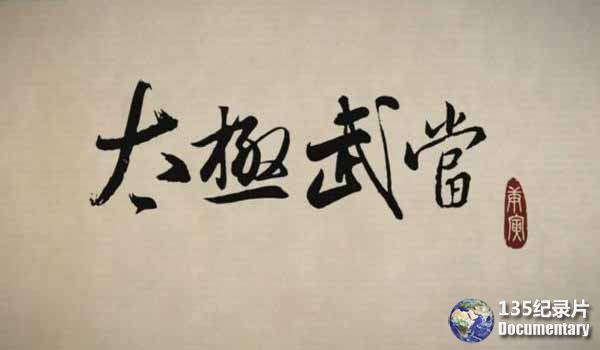 太極武當
庚寅
135纪录片
Documentary